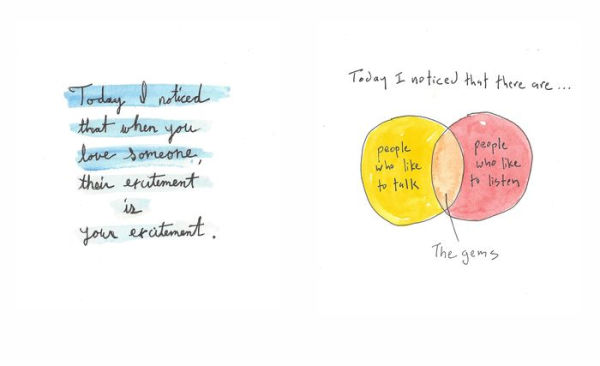 Today I noticed
that when you
love someone,
their excitement
is
your excitement.
Today I noticed that there are...
people
who like
to talk
people
who like
to listen
The gems